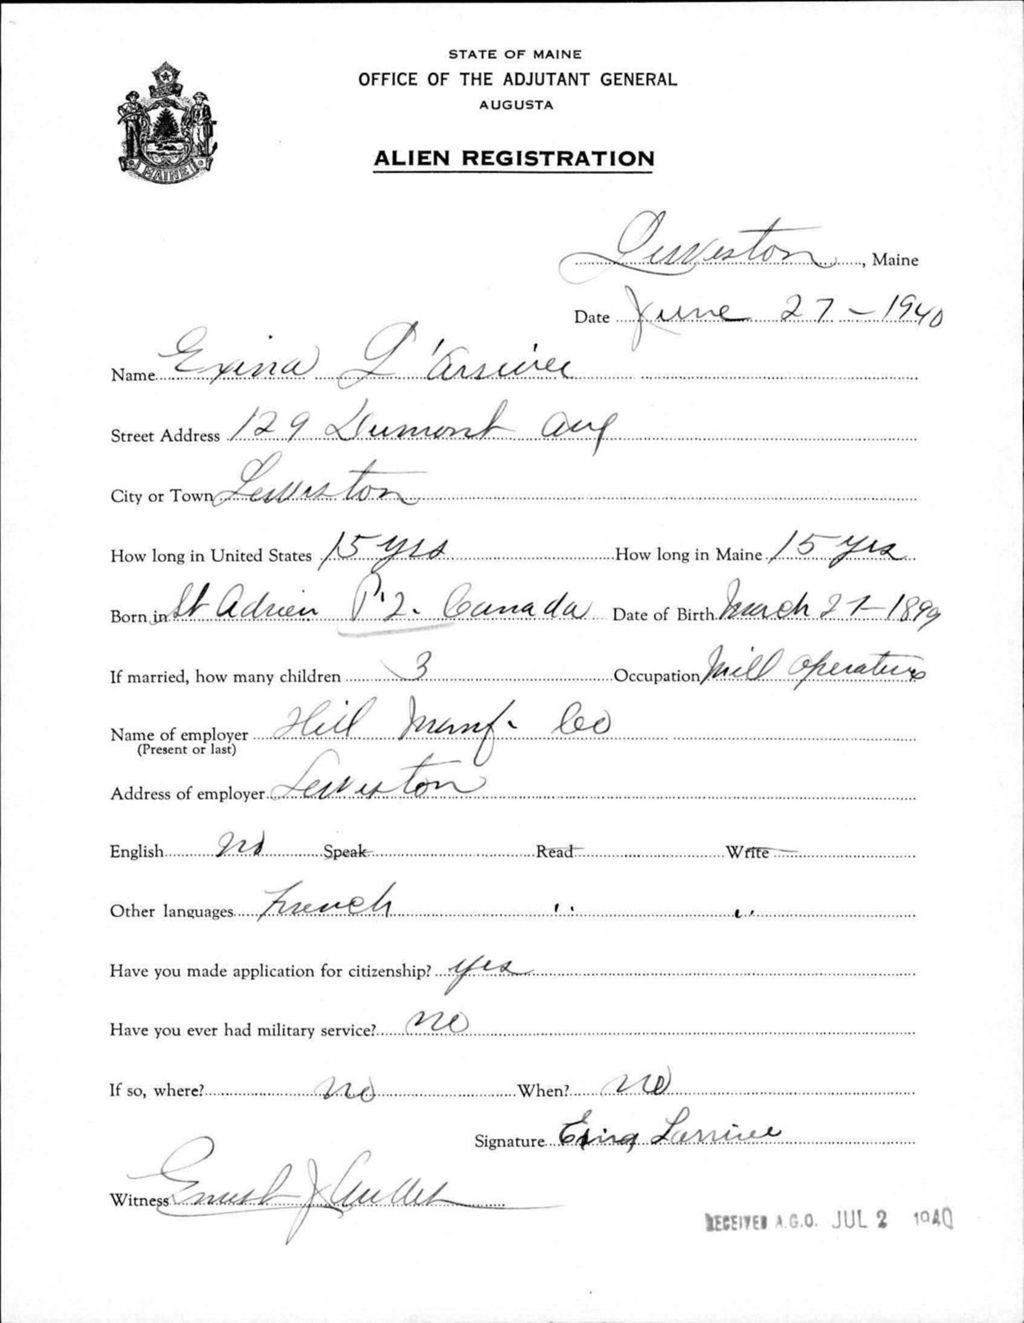 STATE OF MAINE
OFFICE OF THE ADJUTANT GENERAL
AUGUSTA
ALIEN REGISTRATION
MAINE
Lewiston, Maine
Date June 27-1940
Name Exina L'Arrivee
Street Address 129 Dumont Ave
City or Town Lewiston
How long in United States 15 yrs How long in Maine 15 yrs
Born in St Adrien P.2. Canada Date of Birth March 27-1899
If married, how many children 3 Occupation Mill Operator
Name of employer Hill Manf. Co
(Present or last)
Address of employer Lewiston
English no Speak Read Write
Other languages French " "
Have you made application for citizenship? yes
Have you ever had military service? no
If so, where? no When? no
Signature Exina Larrivee
Witness Ernest J Ouellet
RECEIVED A.G.O. JUL 2 1940